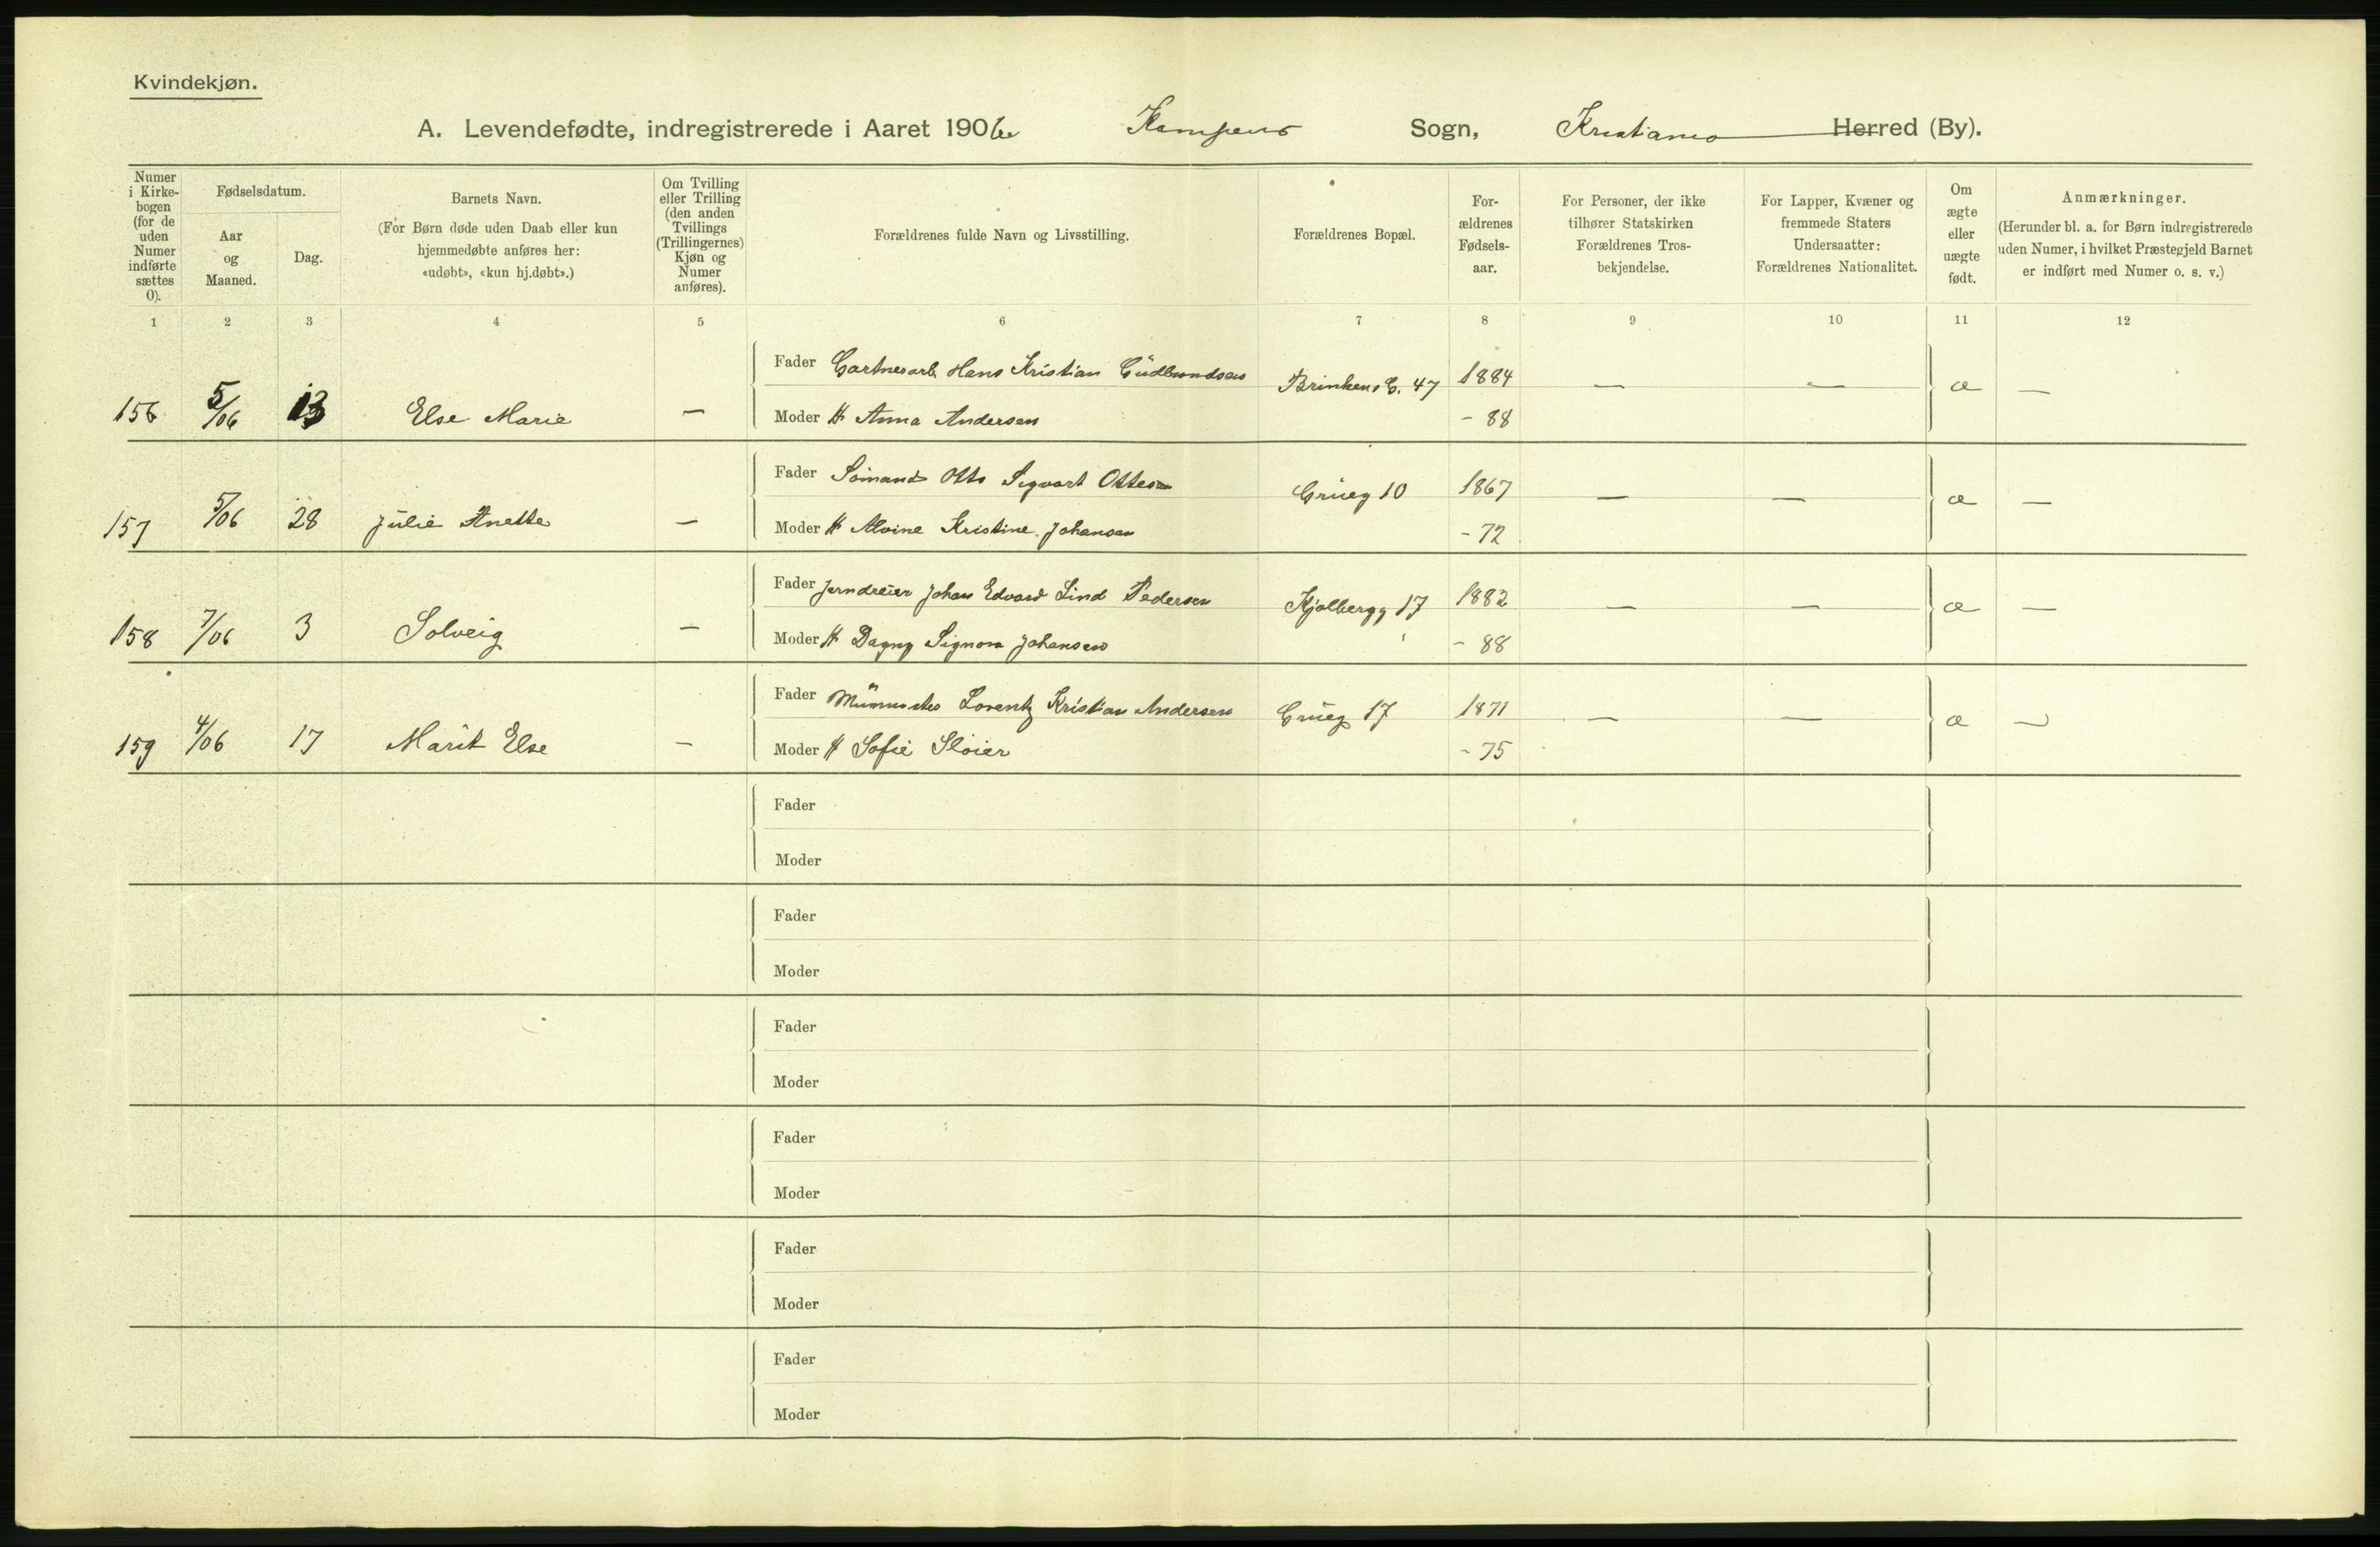 Kvindekjøn.
A. Levendefødte, indregistrerede i Aaret 1906 Kampens Sogn, Kristiania Herred (By).
Numer i Kirke-bogen (for de uden Numer indførte sættes 0).
Fødselsdatum.
Aar og Maaned.
Dag.
Barnets Navn.
(For Børn døde uden Daab eller kun hjemmedøbte anføres her: «udøbt», «kun hj.døbt».)
Om Tvilling eller Trilling (den anden Tvillings (Trillingernes) Kjøn og Numer anføres).
Forældrenes fulde Navn og Livsstilling.
Forældrenes Bopæl.
For-ældrenes Fødsels-aar.
For Personer, der ikke tilhører Statskirken Forældrenes Tros-bekjendelse.
For Lapper, Kvæner og fremmede Staters Undersaatter: Forældrenes Nationalitet.
Om ægte eller uægte født.
Anmærkninger.
(Herunder bl. a. for Børn indregistrerede uden Numer, i hvilket Præstegjeld Barnet er indført med Numer o. s. v.)
1 2 3 4 5 6 7 8 9 10 11 12
Fader Gartnerarb. Hans Kristian Gudbrandsen Brinken G. 47 1884 — — æ —
156 5/06 13 Else Marie — Moder H Anna Andersen - 88
Fader Sømand Otto Sigvart Ottesen Grüeg 10 1867 — — æ —
157 5/06 28 Julie Anette — Moder H Alvine Kristine Johansen - 72
Fader Jerndreier Johan Edvard Lind Pedersen Kjølbergg 17 1882 — — æ —
158 7/06 3 Solveig — Moder H Dagny Signora Johansen - 88
Fader Lorentz Kristian Andersen Grüeg 17 1871 — — æ —
159 4/06 17 Marit Else — Moder H Sofie Sløier - 75
Fader
Moder
Fader
Moder
Fader
Moder
Fader
Moder
Fader
Moder
Fader
Moder